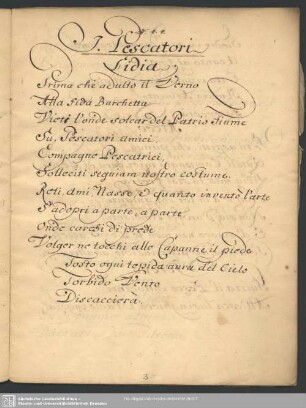 I. Pescatori
Lidia
Prima che adulto il Verno
Alla fida Barchetta
Vieti l'onde solcar del Patrio fiume
Su, Pescatori amici
Compagne Pescatrici,
Solleciti seguiam nostro costume.
Reti, Ami Nasse, e quanto inventò l'arte
S'adopri a parte, a parte
Onde carchi di prede
Volger ne tocchi alle Capanne il piede
Tosto ogni tepida aura del Cielo
Torbido Vento
Discaccierà